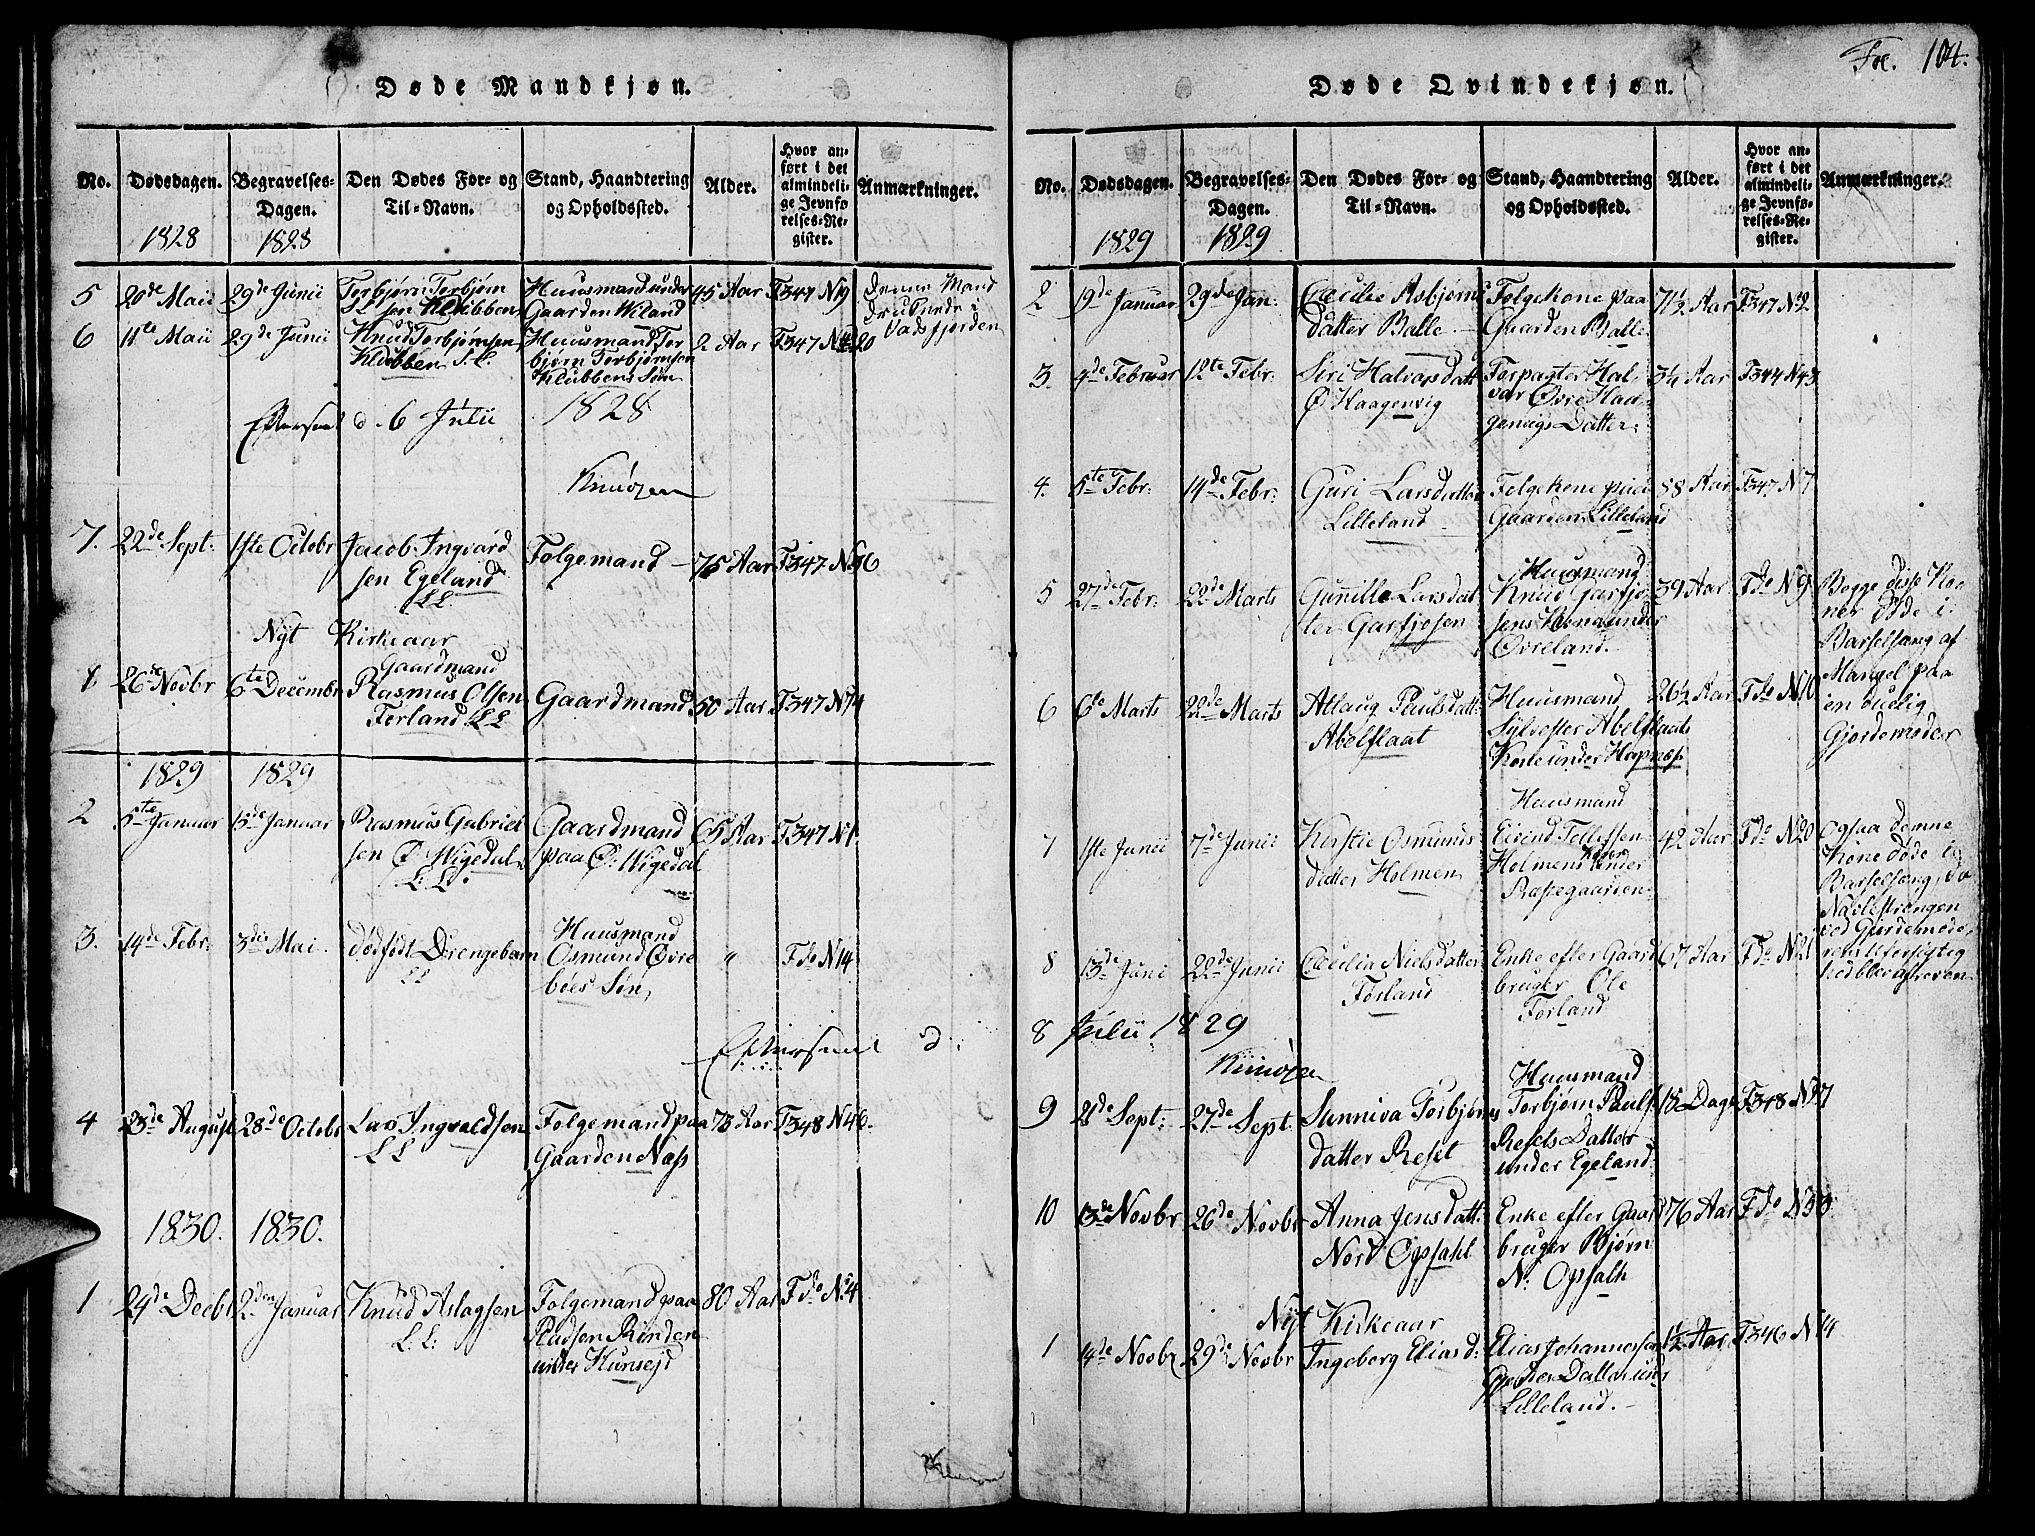 Fol. 104.
Døde Mandkjøn.
No.
Dødsdagen.
1828
Begravelses-
Dagen.
1828
Den Dødes For- og
Til-Navn.
Stand, Haandtering
og Opholdssted.
Alder.
Hvor an-
ført i det
almindeli-
ge Jevnfø-
relses-Re-
gister.
Anmærkninger.
5 20de Maii 29de Junii Torbjørn Torbjørn
sen Klubben
Huusmand under
Gaarden Wiland
45 Aar F347 N19
denne Mand
druknede i
Vadsfjorden
6 11te Maii 29de Junii Knud Torbjørnsen
Klubben S. L.
Huusmand Tor
bjørn Torbjørnsen
Klubbens Søn
2 Aar F347 N20
Efterseet d. 6 Julii 1828
7. 22de Sept. 1ste Octobr Jacob Ingvard
sen Egeland
LL.
Folgemand 75 Aar F347 N36
Nyt Kirkeaar
1 26de Novbr 6te Decembr
Gaardmand
Rasmus Olsen
Førland LL
Gaardmand 50 Aar F347 N74
1829 1829
2 5te Januar 15de Januar Rasmus Gabriel
sen Ø. Wigedal
LL.
Gaardmand
paa Ø. Wigedal
65 Aar F347 N1.
3. 14de Febr. 3die Mai. dødfødt Drengebarn
LL
Huusmand
Osmund Øvre
bøes Søn,
" Fdo N14
Efterseet d.
4 23de August 28de Octobr Lars Ingvaldsen
LL
Folgemand paa
Gaarden Næss
73 Aar F348 N46.
1830. 1830.
1 24de Decbr 2den Januar Knud Aslagsen
LL.
Folgemand paa
Pladsen Rinden
under Hunsejd
80 Aar Fdo N4
Døde Qvindekjøn.
No.
Dødsdagen.
1829
Begravelses-
Dagen.
1829
Den Dødes For- og
Til-Navn.
Stand, Haandtering
og Opholdssted.
Alder.
Hvor an-
ført i det
almindeli-
ge Jevnfø-
relses-Re-
gister.
Anmærkninger.
2 19de Januar 29de Jan. Cæcilie Asbjørns
datter Balle
Folgekone paa
Gaarden Balle
71½ Aar F347 N2
3. 4de Februar 12te Febr. Siri Halvorsdatt
Ø Haagenvig
Forpagter Hal-
vor Øvre Haa-
genvigs Datter.
3¼ Aar F344 N43
4. 5te Febr. 14de Febr. Guri Larsdatter
Lilleland
Folgekone paa
Gaarden Lilleland
88 Aar F347 N7
5 27de Febr. 22de Marts Gunille Larsdat
ter Garsjosen
Huusmand
Knud Garsjo
sens Kone under
Øvreland.
39 Aar Fdo N9
Begge disse Ko
ner døde i
Barselsæng af
Mangel paa
en duelig
Gjordemoder
6 6te Marts 22de Marts Atlaug Paulsdatt.
Abelflaat
Huusmand
Sylvester Abelflaats
Kone under Hapness
26½ Aar Fdo N10
7 1ste Junii 7de Junii Kirstie Osmunds
datter Holmen
Huusmand
Eivind Tollefsen
Holmens Kone under
Præstegaarden.
42 Aar Fdo N20
Ogsaa denne
Kone døde i
Barselsæng, da
Navlestrengen
ved Giordemode
rens Uforsigtig
hed blev afreven
8 13de Juni 22de Junii Cæcilia Nielsdatter
Førland
Enke efter Gaard
bruger Ole
Førland
67 Aar Fdo N21
8 Julii 1829
9 21de Sept. 27de Sept. Sunniva Torbjørns
datter Reset
Huusmand
Torbjørn Pauls.
Resets Datter
under Egeland.
15 Dage F348 N27
10 13de Novbr 26de Novbr Anna Jensdatt.
Nord Opsahl
Enke efter Gaard
bruger Bjørn
N. Opsalh
76 Aar Fdo N33
Nyt Kirkeaar
1 14de Novbr 29de Novbr Ingeborg Elias d.
Elias Johannessen
Datter und
Lilleland.
1½ Aar F346 N14